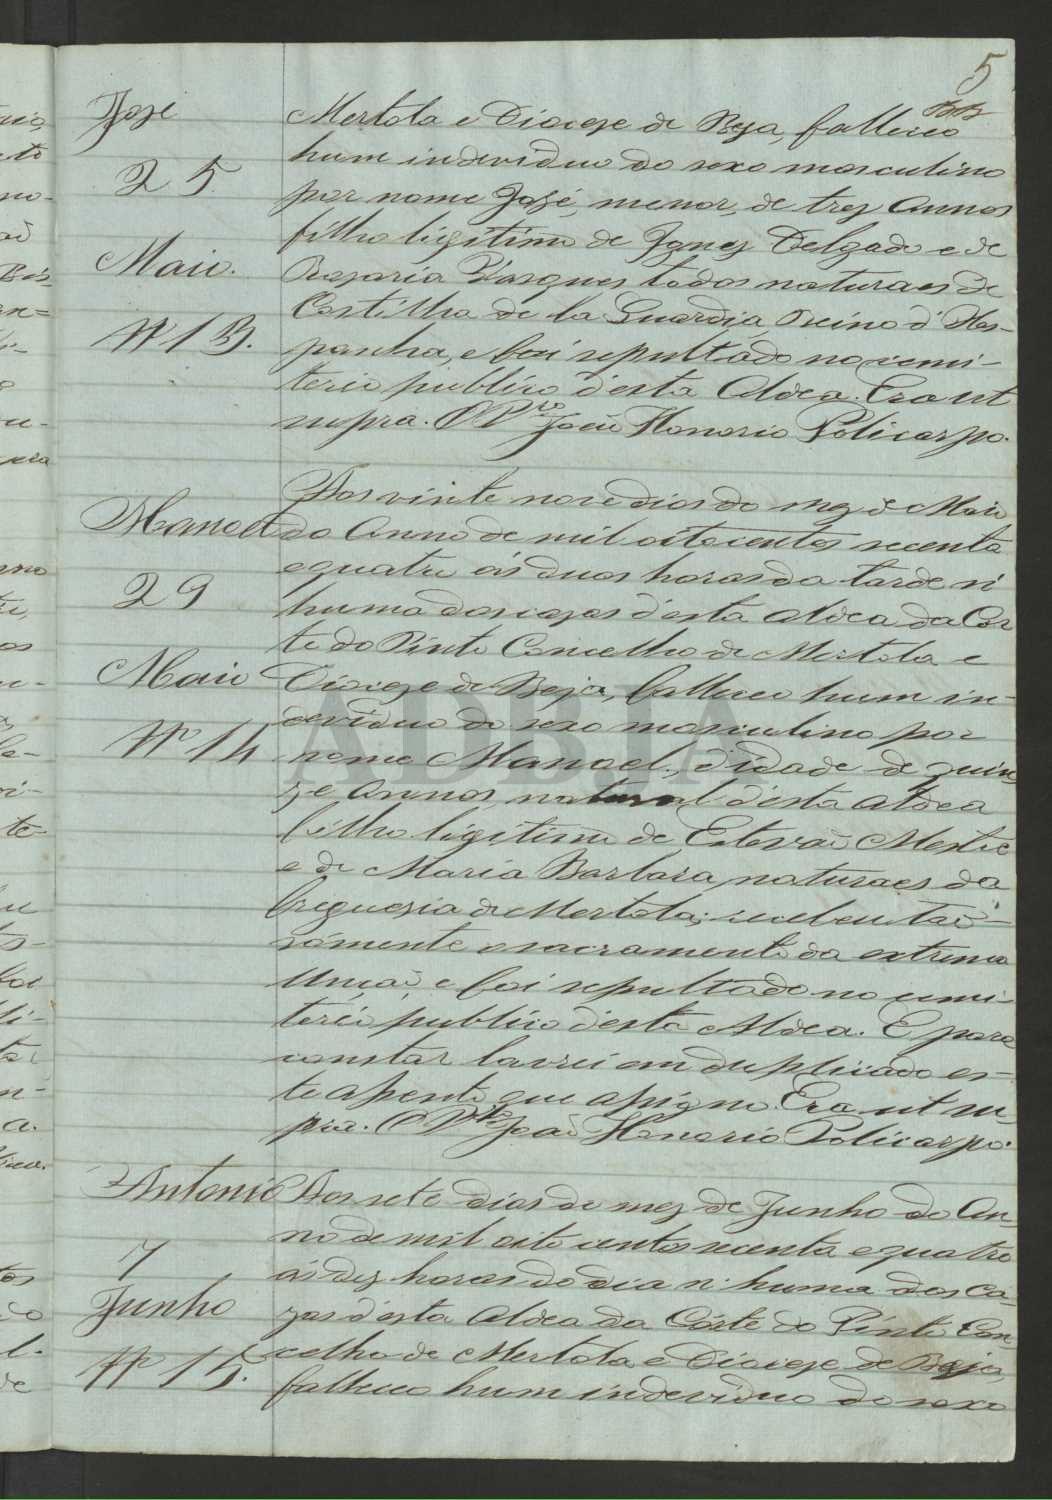 5
José
25
Maio.
Nº 13.
Mertola e Dioceze de Beja, falleceo
hum individuo do sexo masculino
por nome José, menor, de trez Annos
filho ligitimo de Ignez Delgado e de
Rosaria Vasques todos naturaes de
Castilho de la Guardia, Reino d'Hes-
panha, e foi sepultado no cemi-
terio publico d'esta Aldea. Era ut
supra. O P.ro João Honorio Policarpo.
Manoel
29
Maio
Nº 14
Aos vinte nove dias do mez de Maio
do Anno de mil oitocentos secenta
e quatro ás duas horas da tarde n'
huma das cazas d'esta Aldea da Cor
te do Pinto Concelho de Mertola e
Dioceze de Beja, falleceo hum in-
deviduo do sexo masculino por
nome Manoel, d'idade de quin
ze Annos, natural d'esta Aldea
filho ligitimo de Estevaõ Mestre
e de Maria Barbara, naturaes da
freguezia de Mertola; recebeu taõ
sómente o sacramento da extrema
Unçaõ, e foi sepultado no cemi-
terio publico d'esta Aldea. E para
constar lavrei em duplicado es-
te assento que assigno. Era ut su-
pra. O P.ro João Honorio Policarpo.
Antonio
7
Junho
Nº 15.
Aos sete dias do mez de Junho do An-
no de mil oito centos secenta e quatro
ás dez horas do dia n'huma das ca-
zas d'esta Aldea da Côrte do Pinto Con
celho de Mertola e Diocese de Beja,
falleceo hum individuo do sexo
ADBJA